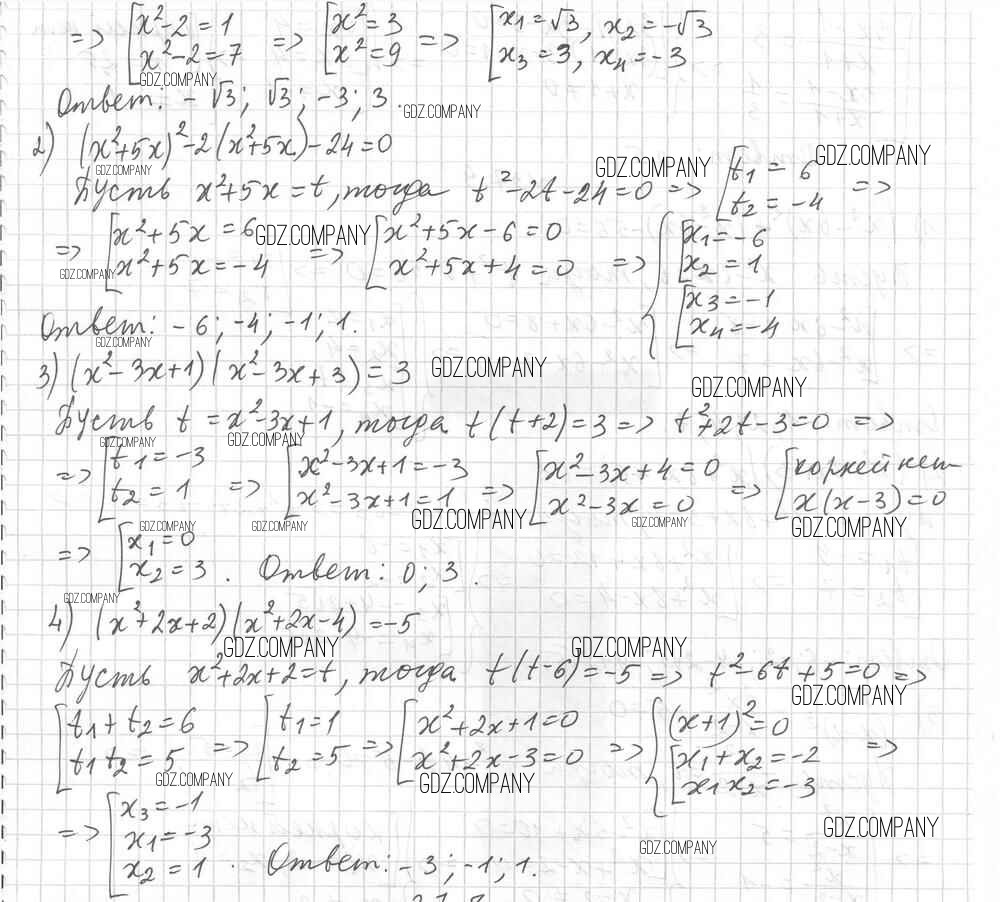 => [x²-2=1 => [x²=3 => [x₁=√3, x₂=-√3
x²-2=7 x²=9 x₃=3, x₄=-3
GDZ.COMPANY
Ответ: -√3; √3; -3; 3. GDZ.COMPANY
2) (x²+5x)²-2(x²+5x)-24=0
GDZ.COMPANY GDZ.COMPANY GDZ.COMPANY
Пусть x²+5x=t, тогда t²-2t-24=0 => [t₁=6 =>
t₂=-4
=> [x²+5x=6 GDZ.COMPANY [x²+5x-6=0 => { [x₁=-6
x²+5x=-4 => x²+5x+4=0 x₂=1
GDZ.COMPANY
[x₃=-1
x₄=-4
Ответ: -6; -4; -1; 1.
GDZ.COMPANY
3) (x²-3x+1)(x²-3x+3)=3 GDZ.COMPANY
GDZ.COMPANY
Пусть t=x²-3x+1, тогда t(t+2)=3 => t²+2t-3=0 =>
GDZ.COMPANY GDZ.COMPANY
=> [t₁=-3 => [x²-3x+1=-3 => [x²-3x+4=0 => [корней нет
t₂=1 x²-3x+1=1 x²-3x=0 x(x-3)=0
GDZ.COMPANY GDZ.COMPANY GDZ.COMPANY GDZ.COMPANY GDZ.COMPANY
=> [x₁=0
x₂=3. Ответ: 0; 3.
GDZ.COMPANY
4) (x²+2x+2)(x²+2x-4)=-5
GDZ.COMPANY GDZ.COMPANY
Пусть x²+2x+2=t, тогда t(t-6)=-5 => t²-6t+5=0 =>
GDZ.COMPANY
[t₁+t₂=6 => [t₁=1 => [x²+2x+1=0 => { (x+1)²=0 =>
t₁t₂=5 t₂=5 x²+2x-3=0 [x₁+x₂=-2
x₁x₂=-3
GDZ.COMPANY GDZ.COMPANY
=> [x₃=-1
x₁=-3 GDZ.COMPANY
x₂=1. Ответ: -3; -1; 1. GDZ.COMPANY